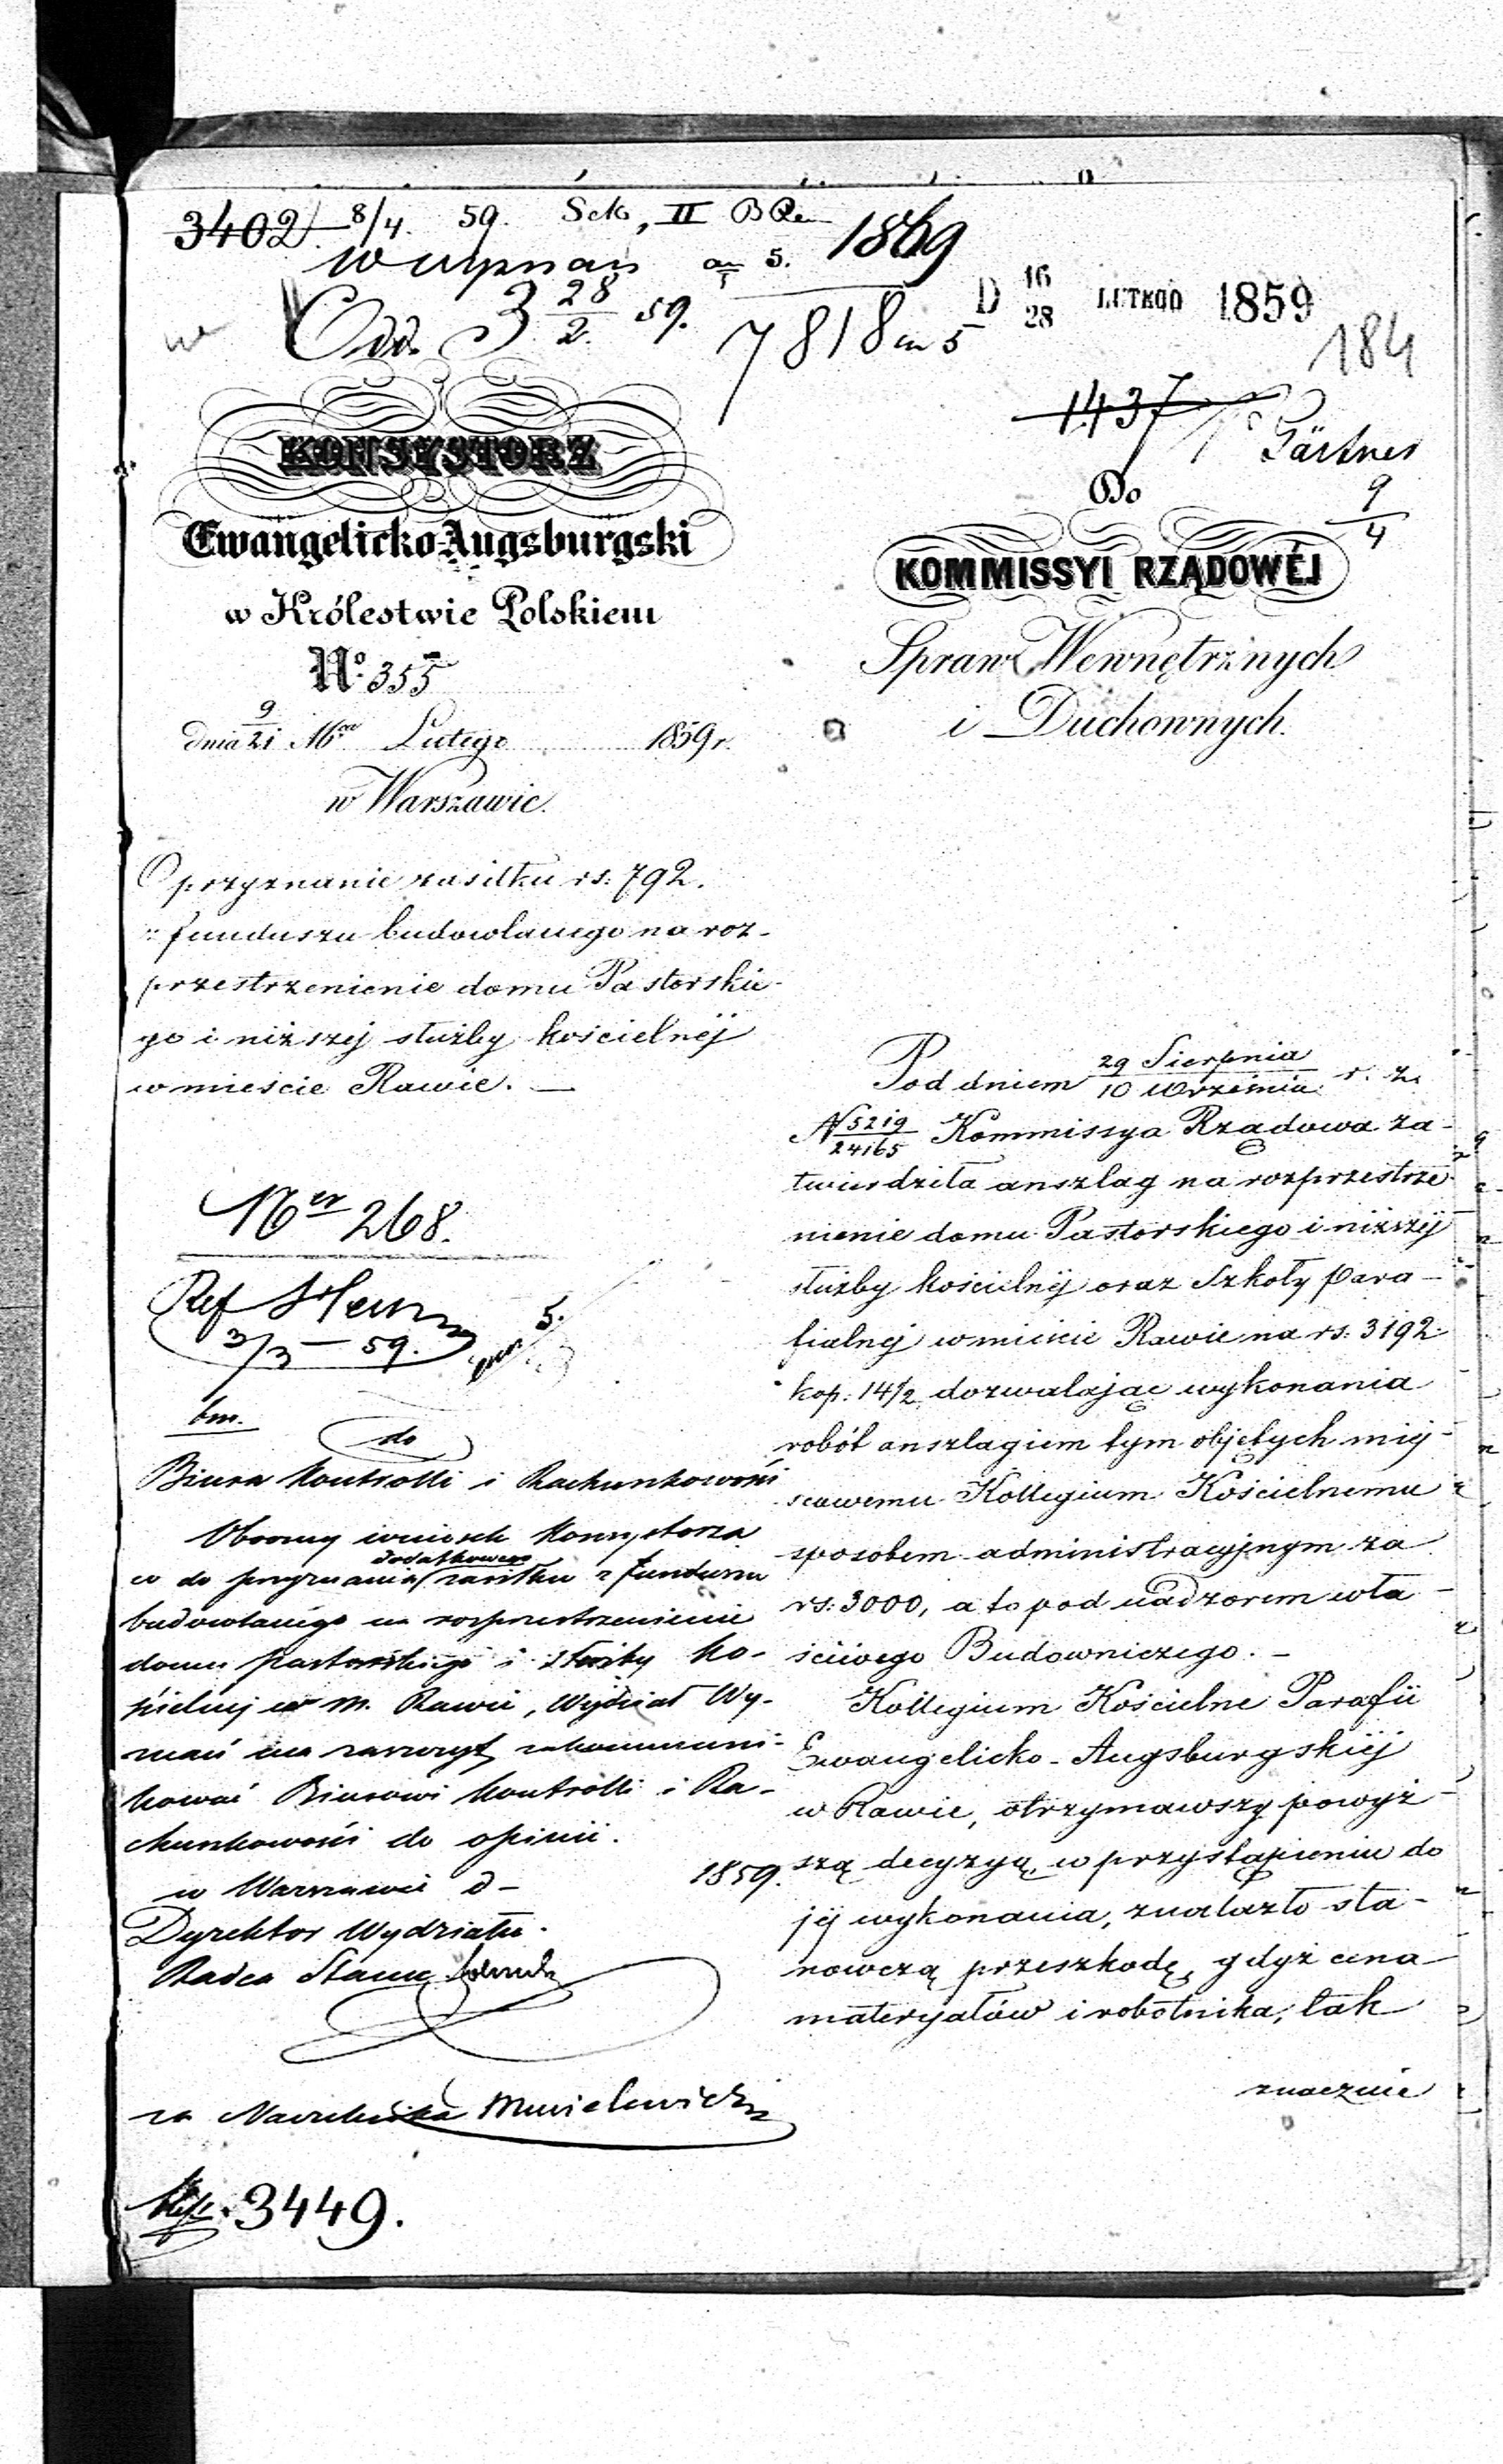 3402 8/4. 59. Sek, II
1869
Odd. 3 28/2. 59. 7818
D 16/28 LUTEGO 1859
184
1437
Gärtner
9/4
KONSYSTORZ
Ewangelicko-Augsburgski
w Królestwie Polskiem
No. 355
dnia 9/21 Mca Lutego 1859 r.
w Warszawie.
O przyznanie zasiłku rs: 792.
z funduszu budowlanego na roz-
przestrzenienie domu Pastorskie-
go i niższej służby kościelnéj
w mieście Rawie. —
Ner 268.
Ref
3/3 – 59.
5.
bm.
do
Biura Kontrolli i Rachunkowości
Obecny wniosek Konsystorza
co do przyznania dodatkowego zasiłku z funduszu
budowlanego na rozprzestrzenienie
domu pastorskiego i służby ko-
ścielnej w m. Rawie, Wydział Wy-
znań ma zaszczyt zakommuni-
kować Biurowi Kontrolli i Ra-
chunkowości do opinii.
w Warszawie d – 1859.
Dyrektor Wydziału.
Radca Stanu
za Naczelnika
3449.
Do
KOMMISSYI RZĄDOWÉJ
Spraw Wewnętrznych
i Duchownych.
Pod dniem 29 Sierpnia/10 Września r. z.
N 5219/24165 Kommissya Rządowa za-
twierdziła anszlag na rozprzestrze-
nienie domu Pastorskiego i niższéj
służby kościelnéj oraz Szkoły para-
fialnéj w mieście Rawie na rs: 3192
kop: 14½ dozwalając wykonania
robót anszlagiem tym objętych miej-
scowemu Kollegium Kościelnemu
sposobem administracyjnym za
rs: 3000, a to pod nadzorem wła-
ściwego Budowniczego. –
Kollegium Kościelne Parafii
Ewangelicko-Augsburgskiéj
w Rawie, otrzymawszy powyż-
szą decyzyą, w przystąpieniu do
jéj wykonania, znalazło sta-
nowczą przeszkodę, gdyż cena
materyałów i robotnika, tak
znacznie